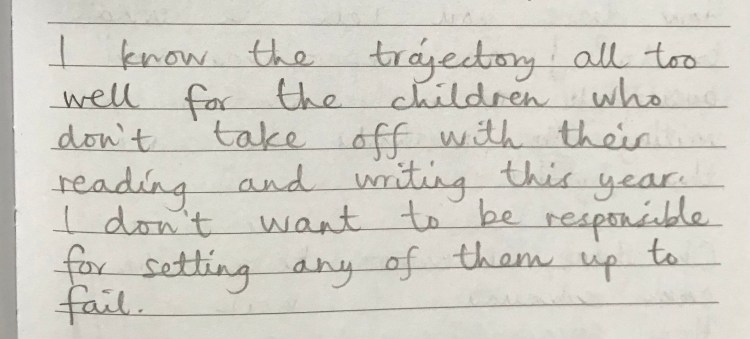 I know the trajectory all too
well for the children who
don't take off with their
reading and writing this year.
I don't want to be responsible
for setting any of them up to
fail.